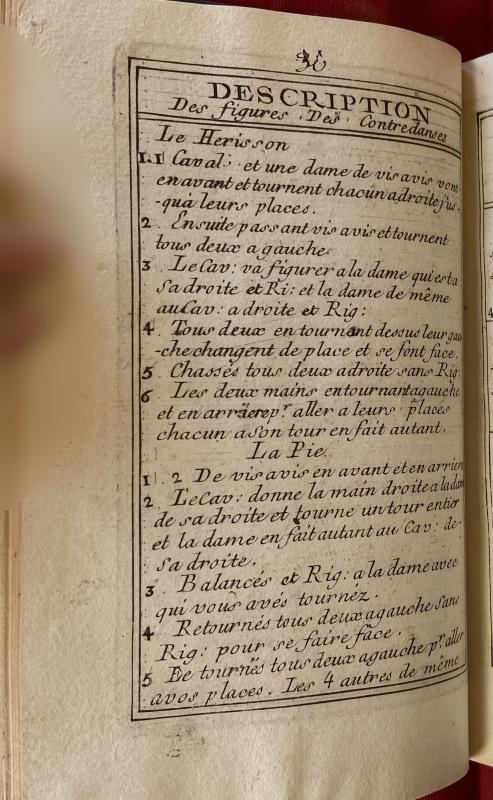 36
DESCRIPTION
Des figures Des Contredanses
Le Herisson
1. 1 Caval: et une dame de vis avis vont
en avant et tournent chacun a droite jus-
-qu'a leurs places.
2. Ensuite passant vis avis et tournent
tous deux a gauche.
3 Le Cav: va figurer a la dame qui est a
sa droite et Ri: et la dame de même
au Cav: a droite et Rig:
4. Tous deux en tournant dessus leur gau
-che changent de place et se font face.
5 Chassés tous deux a droite sans Rig:
6 Les deux mains en tournant a gauche
et en arriere pr. aller a leurs places
chacun a son tour en fait autant.
La Pie.
1. 2 De vis avis en avant et en arriere
2 Le Cav: donne la main droite a la dam
de sa droite et tourne un tour entier
et la dame en fait autant au Cav: de
sa droite.
3 Balancés et Rig: a la dame avec
qui vous avés tournéz.
4 Retournés tous deux a gauche sans
Rig: pour se faire face.
5 Ee tournés tous deux a gauche pr. aller
avos places. Les 4 autres de même